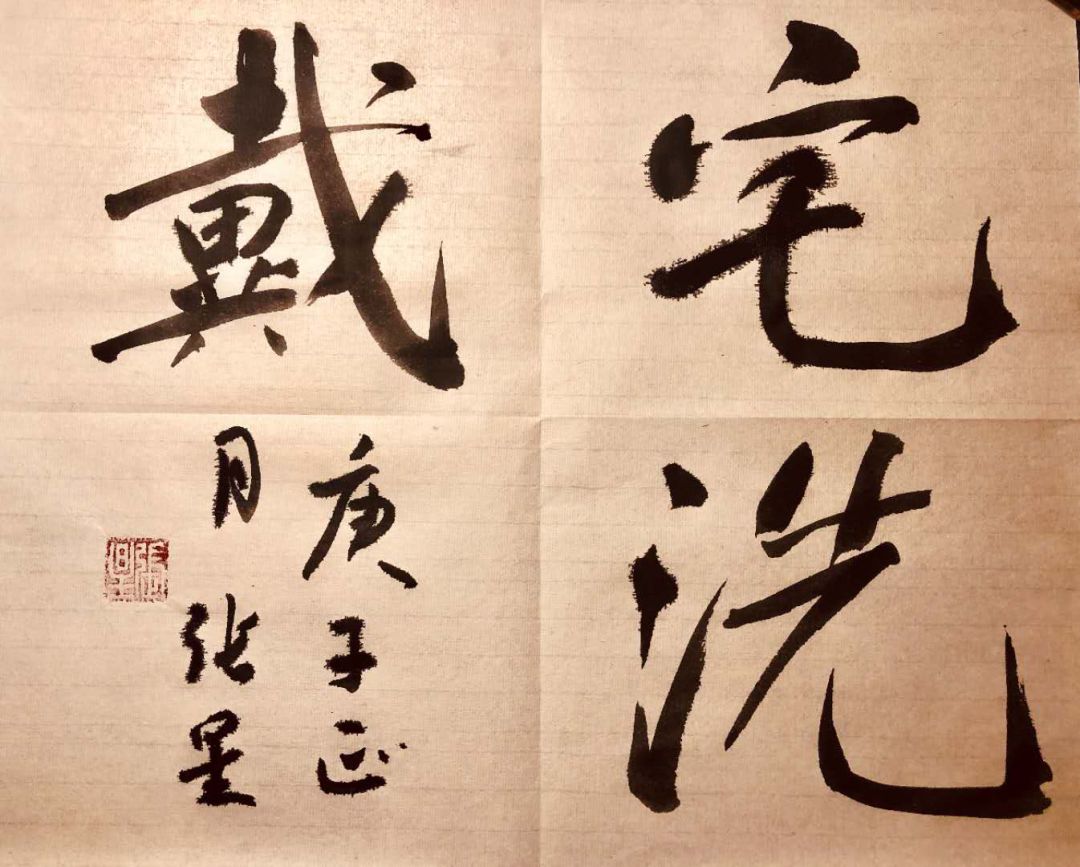 宅洗
戴
庚子正
月张星